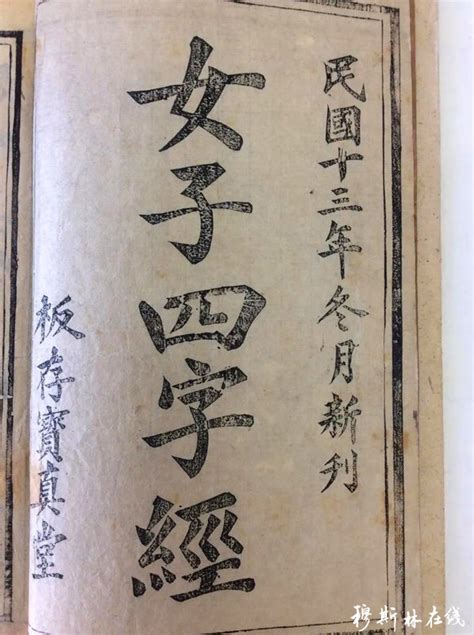 民國十三年冬月新刊
女子四字經
板存寳真堂
穆斯林在线